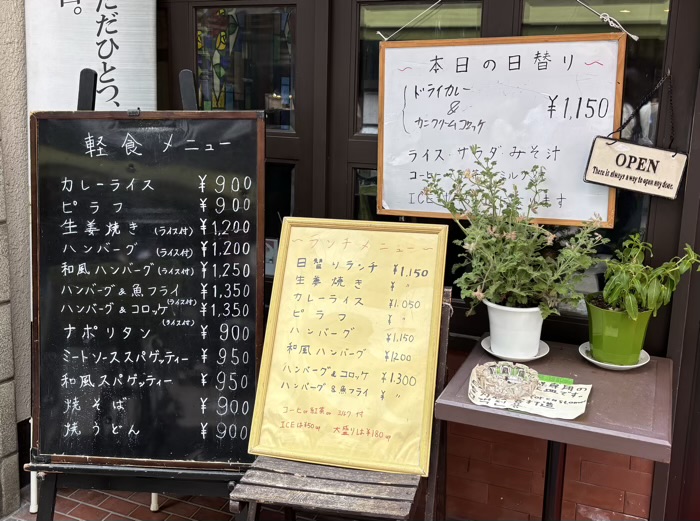 ただひとつ、
軽食メニュー
カレーライス ¥900
ピラフ ¥900
生姜焼き (ライス付) ¥1,200
ハンバーグ (ライス付) ¥1,200
和風ハンバーグ (ライス付) ¥1,250
ハンバーグ&魚フライ (ライス付) ¥1,350
ハンバーグ&コロッケ (ライス付) ¥1,350
ナポリタン ¥900
ミートソーススパゲッティー ¥950
和風スパゲッティー ¥950
焼そば ¥900
焼うどん ¥900
ランチメニュー
日替りランチ ¥1,150
生姜焼き ¥ 〃
カレーライス ¥1,050
ピラフ ¥ 〃
ハンバーグ ¥1,150
和風ハンバーグ ¥1200
ハンバーグ&コロッケ ¥1,300
ハンバーグ&魚フライ ¥ 〃
コーヒー 紅茶 ミルク 付
ICEは¥50 大盛りは¥180
本日の日替り
ドライカレー
&
カニクリームコロッケ
¥1,150
ライス・サラダ みそ汁
コーヒー ミルク
ICE ます
OPEN
There is always a way to open any door.